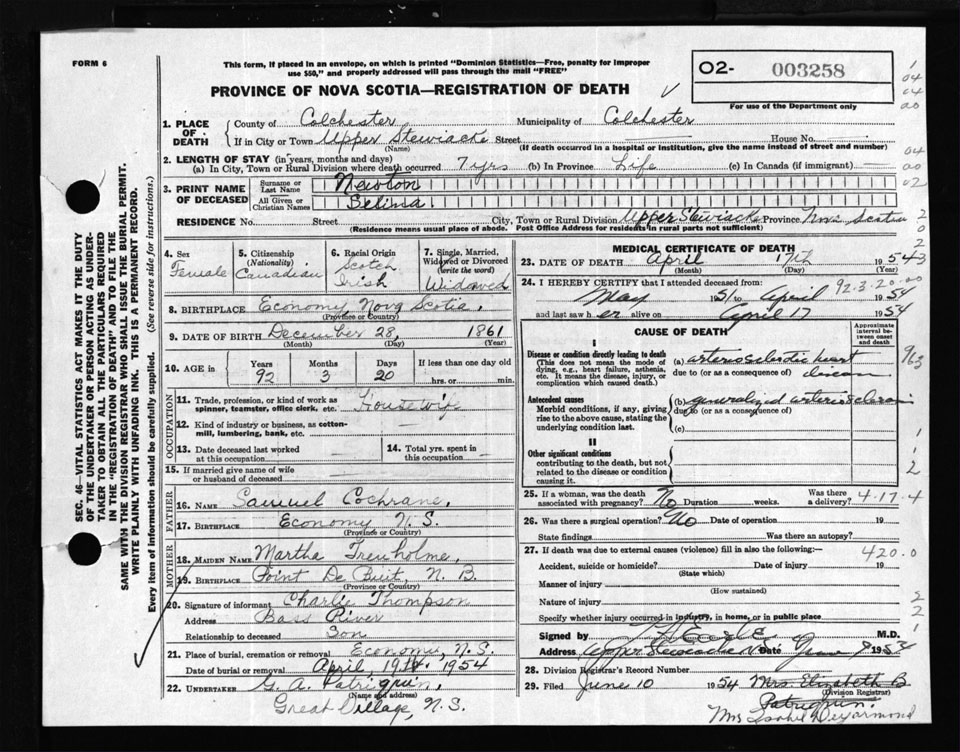 FORM 6
This form, if placed in an envelope, on which is printed "Dominion Statistics—Free, penalty for improper
use $50," and properly addressed will pass through the mail "FREE"
PROVINCE OF NOVA SCOTIA—REGISTRATION OF DEATH
02- 003258
For use of the Department only
1. PLACE OF DEATH County of Colchester Municipality of Colchester
If in City or Town Upper Stewiacke Street House No.
(Name) (If death occurred in a hospital or institution, give the name instead of street and number)
2. LENGTH OF STAY (in years, months and days)
(a) In City, Town or Rural Division where death occurred 7 yrs (b) In Province Life (c) In Canada (if immigrant)
3. PRINT NAME OF DECEASED Surname or Last Name Newton
All Given or Christian Names Selina.
RESIDENCE No. Street City, Town or Rural Division Upper Stewiack Province Nova Scotia
(Residence means usual place of abode. Post Office Address for residents in rural parts not sufficient)
4. Sex Female
5. Citizenship (Nationality) Canadian
6. Racial Origin Scotch Irish
7. Single, Married, Widowed or Divorced (write the word) Widowed
8. BIRTHPLACE Economy Nova Scotia.
(Province or Country)
9. DATE OF BIRTH December 28, 1861
(Month) (Day) (Year)
10. AGE in Years 92 Months 3 Days 20 If less than one day old hrs. or min.
OCCUPATION
11. Trade, profession, or kind of work as spinner, teamster, office clerk, etc. Housewife
12. Kind of industry or business, as cotton-mill, lumbering, bank, etc.
13. Date deceased last worked at this occupation
14. Total yrs. spent in this occupation
15. If married give name of wife or husband of deceased
FATHER
16. NAME Samuel Cochrane,
17. BIRTHPLACE Economy N. S.
(Province or Country)
MOTHER
18. MAIDEN NAME Martha Trenholme,
19. BIRTHPLACE Point De Buit, N. B.
(Province or Country)
20. Signature of informant Charlie Thompson
Address Bass River
Relationship to deceased Son
21. Place of burial, cremation or removal Economy, N. S.
Date of burial or removal April, 1954
22. UNDERTAKER G. A. Patriquin,
(Name and address)
Great Village, N. S.
MEDICAL CERTIFICATE OF DEATH
23. DATE OF DEATH April 17th 1954
(Month) (Day) (Year)
24. I HEREBY CERTIFY that I attended deceased from:
May 1951 to April 1954
and last saw her alive on April 17 1954
CAUSE OF DEATH
Approximate interval between onset and death
I
Disease or condition directly leading to death
(This does not mean the mode of dying, e.g., heart failure, asthenia, etc. It means the disease, injury, or complication which caused death.)
(a) arteriosclerotic heart disease
due to (or as a consequence of)
Antecedent causes
Morbid conditions, if any, giving rise to the above cause, stating the underlying condition last.
(b) generalized arteriosclerosis
due to (or as a consequence of)
(c)
II
Other significant conditions
contributing to the death, but not related to the disease or condition causing it.
25. If a woman, was the death associated with pregnancy? No Duration weeks. Was there a delivery?
26. Was there a surgical operation? No Date of operation 19
State findings Was there an autopsy?
27. If death was due to external causes (violence) fill in also the following:—
Accident, suicide or homicide? Date of injury 19
(State which)
Manner of injury
(How sustained)
Nature of injury
Specify whether injury occurred in industry, in home, or in public place
Signed by M.D.
Address Upper Stewiacke NS Date June 9
28. Division Registrar's Record Number
29. Filed June 10 1954 Mrs. Elizabeth B
(Division Registrar)
Patriquin.
Mrs Isabel Deyarmond
92-3-20-00
4-17-4
420.0
SEC. 46—VITAL STATISTICS ACT MAKES IT THE DUTY
OF THE UNDERTAKER OR PERSON ACTING AS UNDER-
TAKER TO OBTAIN ALL THE PARTICULARS REQUIRED
IN THE "REGISTRATION OF DEATH" AND TO FILE THE
SAME WITH THE DIVISION REGISTRAR WHO SHALL ISSUE THE BURIAL PERMIT.
WRITE PLAINLY WITH UNFADING INK. THIS IS A PERMANENT RECORD.
Every item of information should be carefully supplied. (See reverse side for instructions.)